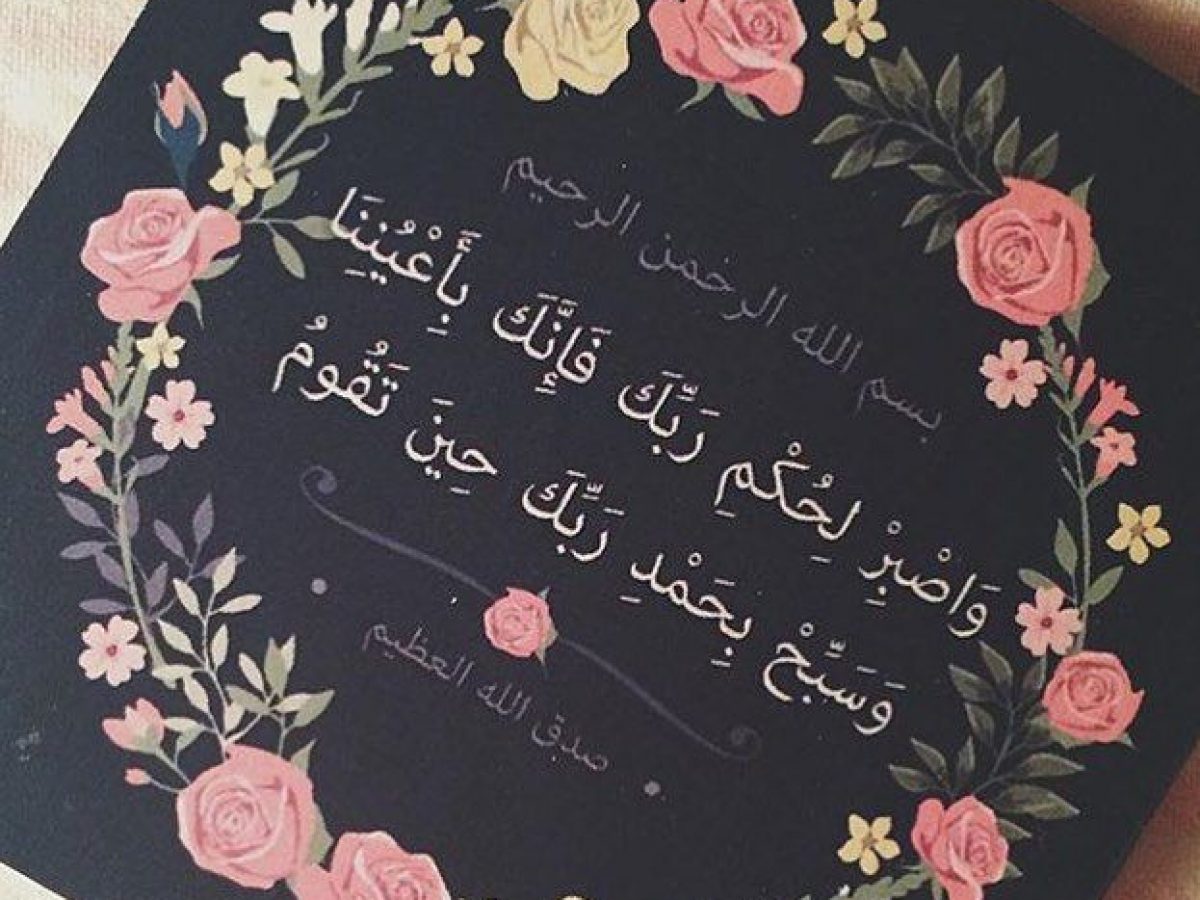 بسم الله الرحمن الرحيم
وَاصْبِرْ لِحُكْمِ رَبِّكَ فَإِنَّكَ بِأَعْيُنِنَا
وَسَبِّحْ بِحَمْدِ رَبِّكَ حِينَ تَقُومُ
صدق الله العظيم